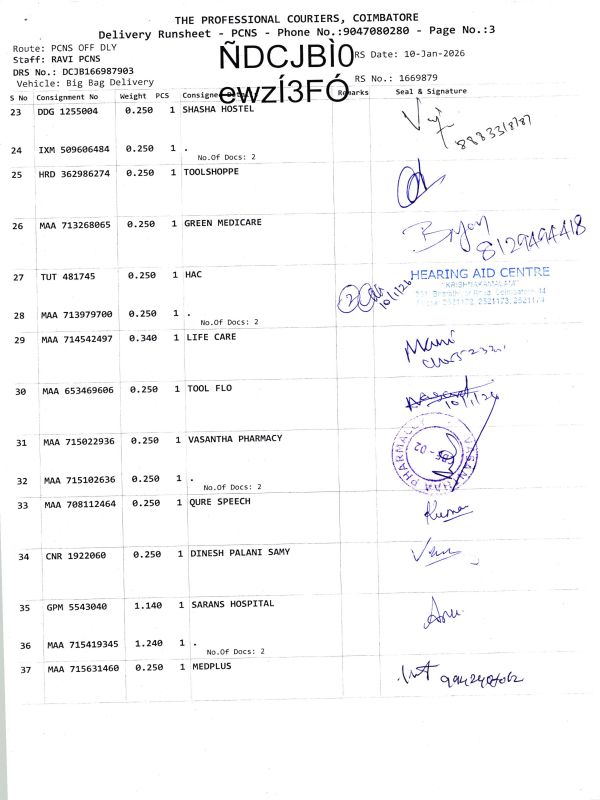 THE PROFESSIONAL COURIERS, COIMBATORE
Delivery Runsheet - PCNS - Phone No.:9047080280 - Page No.:3
Route: PCNS OFF DLY
Staff: RAVI PCNS
ÑDCJBÌ0
RS Date: 10-Jan-2026
DRS No.: DCJB166987903
Vehicle: Big Bag Delivery
ewzÍ3FÓ
RS No.: 1669879
S No Consignment No Weight PCS Consignee Remarks Seal & Signature
23 DDG 1255004 0.250 1 SHASHA HOSTEL
24 IXM 509606484 0.250 1 .
No.Of Docs: 2
25 HRD 362986274 0.250 1 TOOLSHOPPE
26 MAA 713268065 0.250 1 GREEN MEDICARE
8129494418
27 TUT 481745 0.250 1 HAC
HEARING AID CENTRE
10/1/26
28 MAA 713979700 0.250 1 .
No.Of Docs: 2
29 MAA 714542497 0.340 1 LIFE CARE
Mani
30 MAA 653469606 0.250 1 TOOL FLO
10/1/26
31 MAA 715022936 0.250 1 VASANTHA PHARMACY
32 MAA 715102636 0.250 1 .
No.Of Docs: 2
33 MAA 708112464 0.250 1 QURE SPEECH
Kumar
34 CNR 1922060 0.250 1 DINESH PALANI SAMY
35 GPM 5543040 1.140 1 SARANS HOSPITAL
36 MAA 715419345 1.240 1 .
No.Of Docs: 2
37 MAA 715631460 0.250 1 MEDPLUS